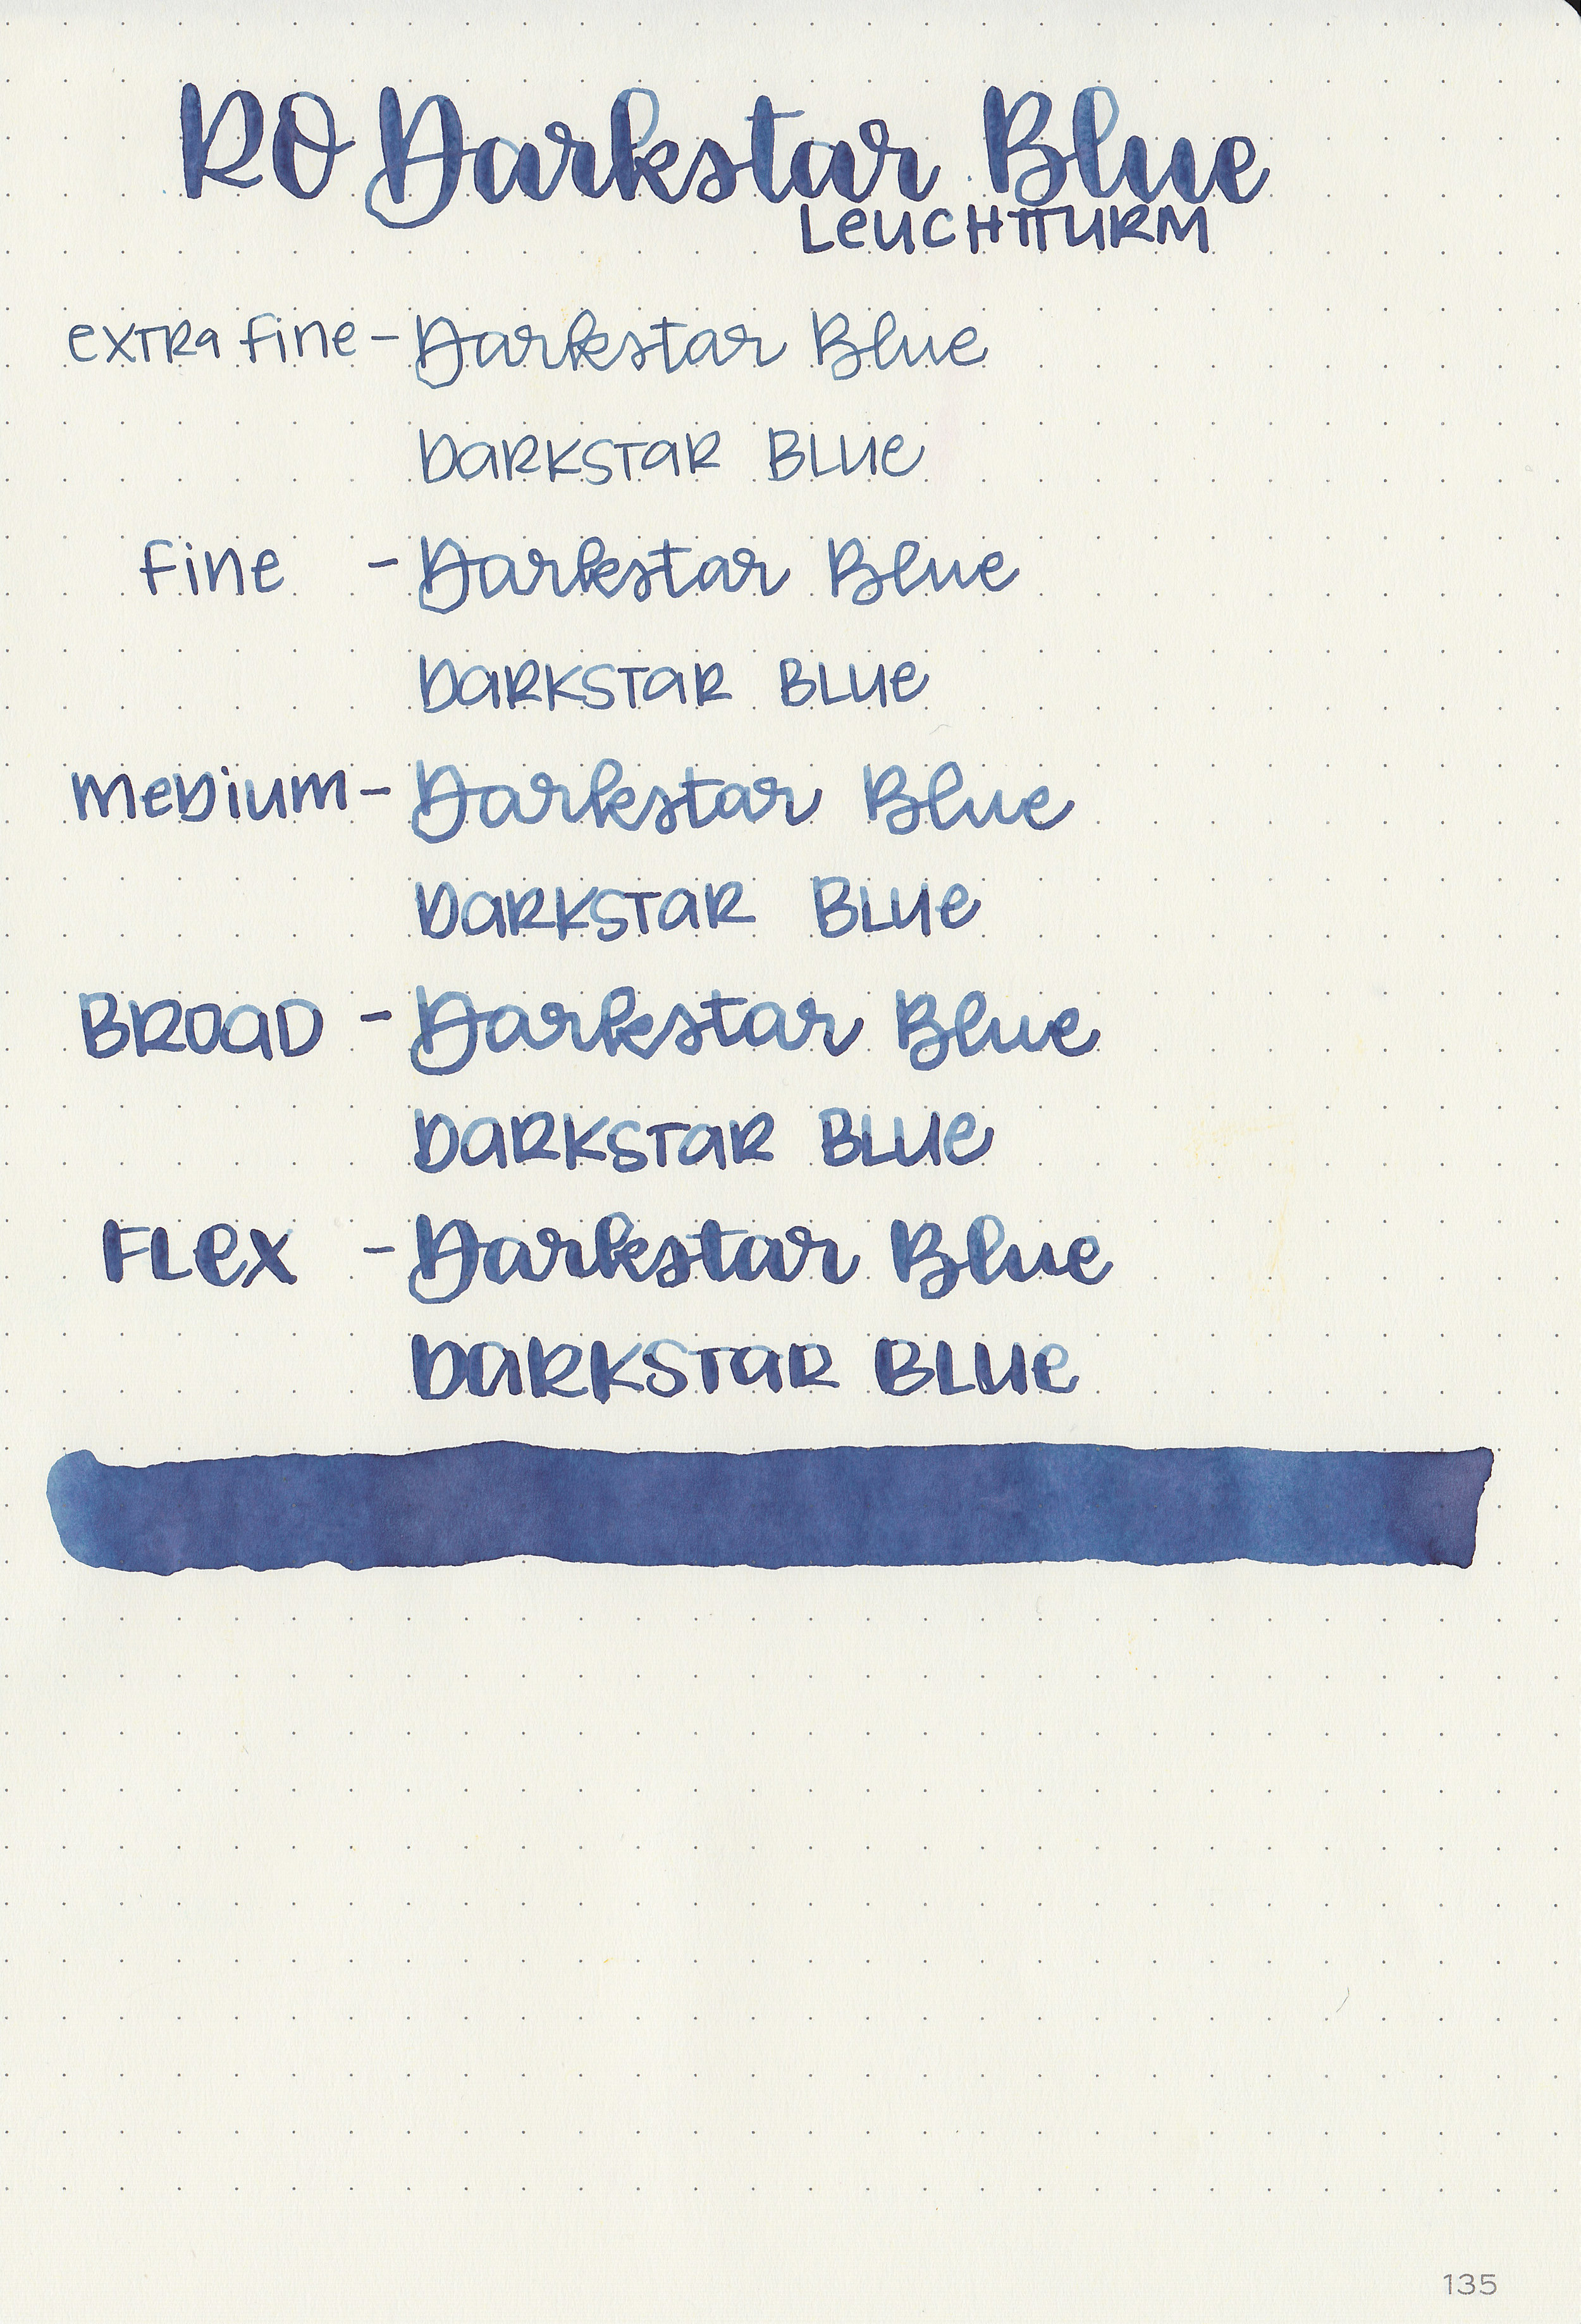 RO Darkstar Blue
Leuchtturm
extra fine - Darkstar Blue
Darkstar Blue
fine - Darkstar Blue
Darkstar Blue
medium - Darkstar Blue
Darkstar Blue
Broad - Darkstar Blue
Darkstar Blue
Flex - Darkstar Blue
Darkstar Blue
135